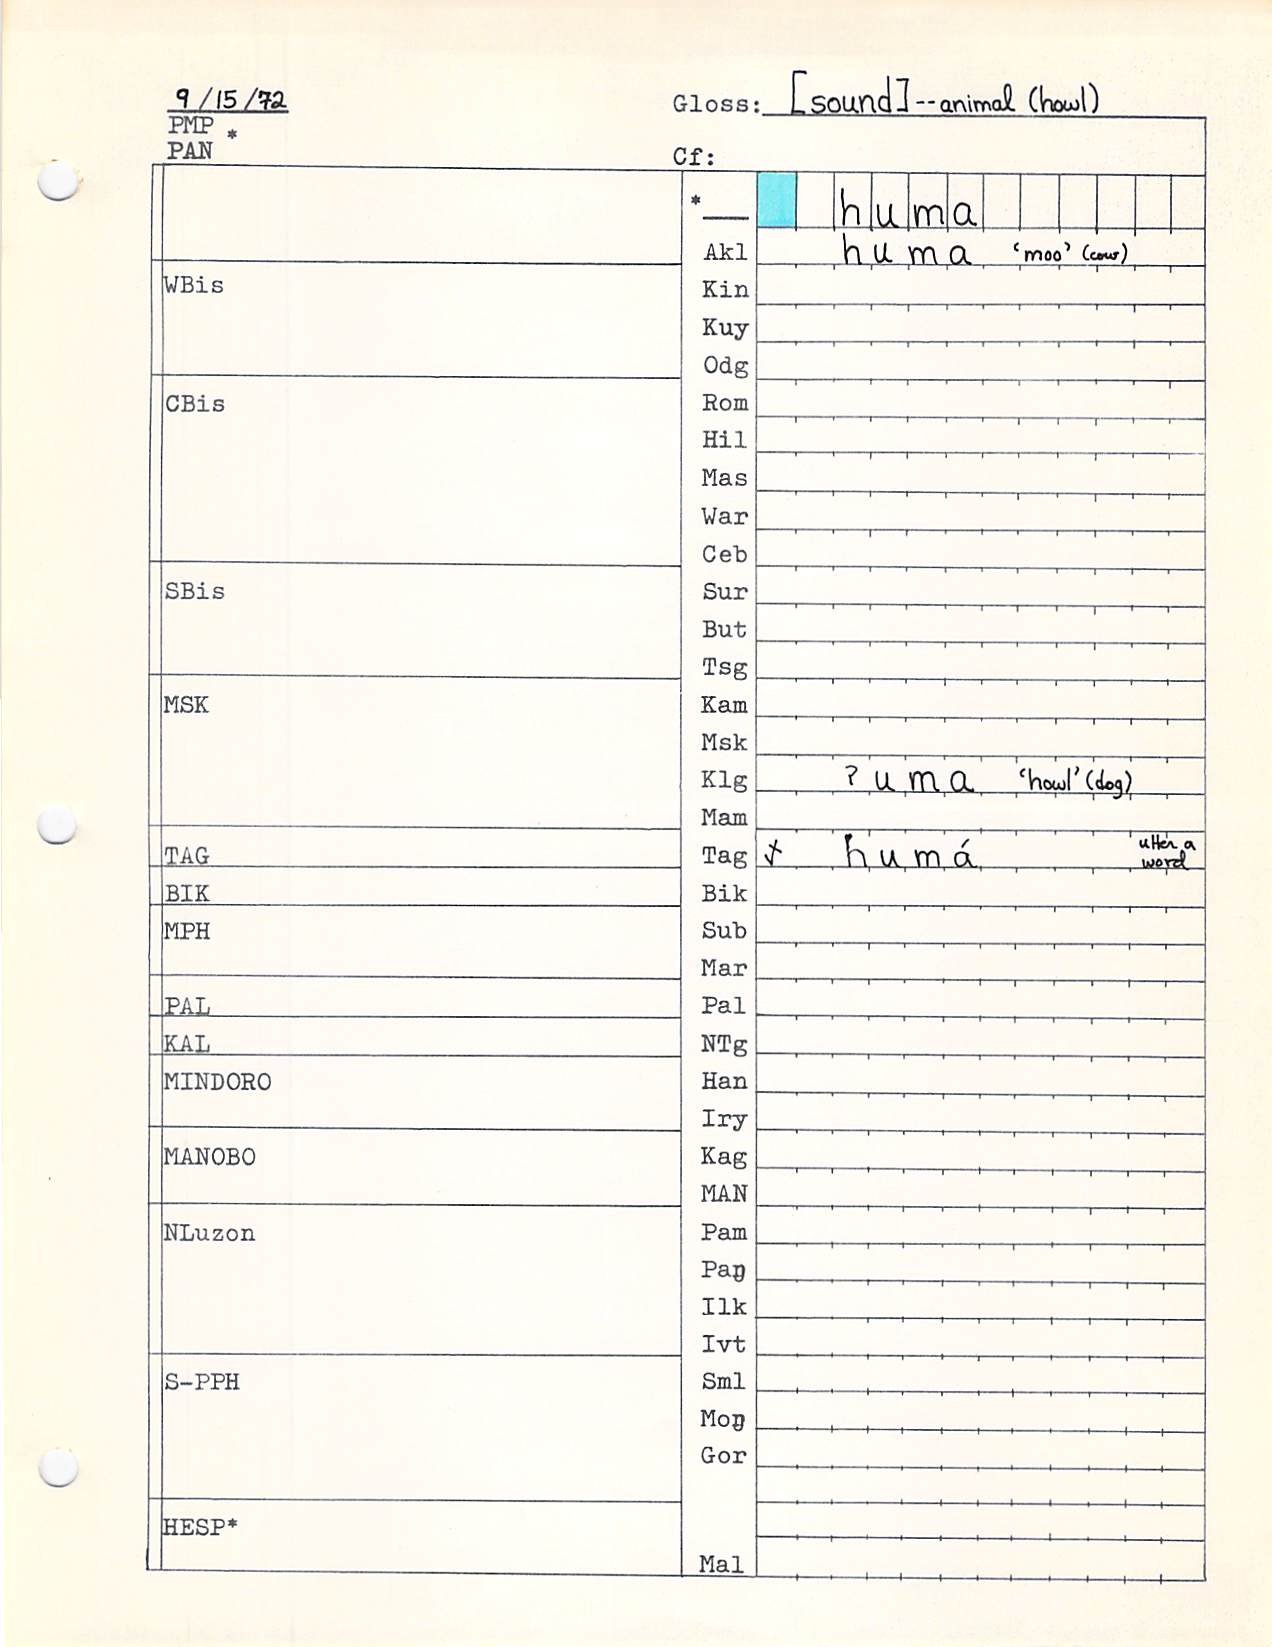 9/15/72
PMP *
PAN
Gloss: [sound]--animal (howl)
Cf:
*__ huma
Akl huma ‘moo’ (cow)
WBis
Kin
Kuy
Odg
CBis
Rom
Hil
Mas
War
Ceb
SBis
Sur
But
Tsg
MSK
Kam
Msk
Klg ʔuma ‘howl’ (dog)
Mam
TAG
Tag humá utter a word
BIK
Bik
MPH
Sub
Mar
PAL
Pal
KAL
NTg
MINDORO
Han
Iry
MANOBO
Kag
MAN
NLuzon
Pam
Paŋ
Ilk
Ivt
S-PPH
Sml
Moŋ
Gor
HESP*
Mal